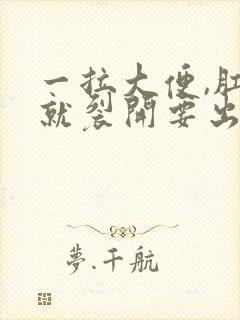 一拉大便,肛
就裂開要出
夢.千航